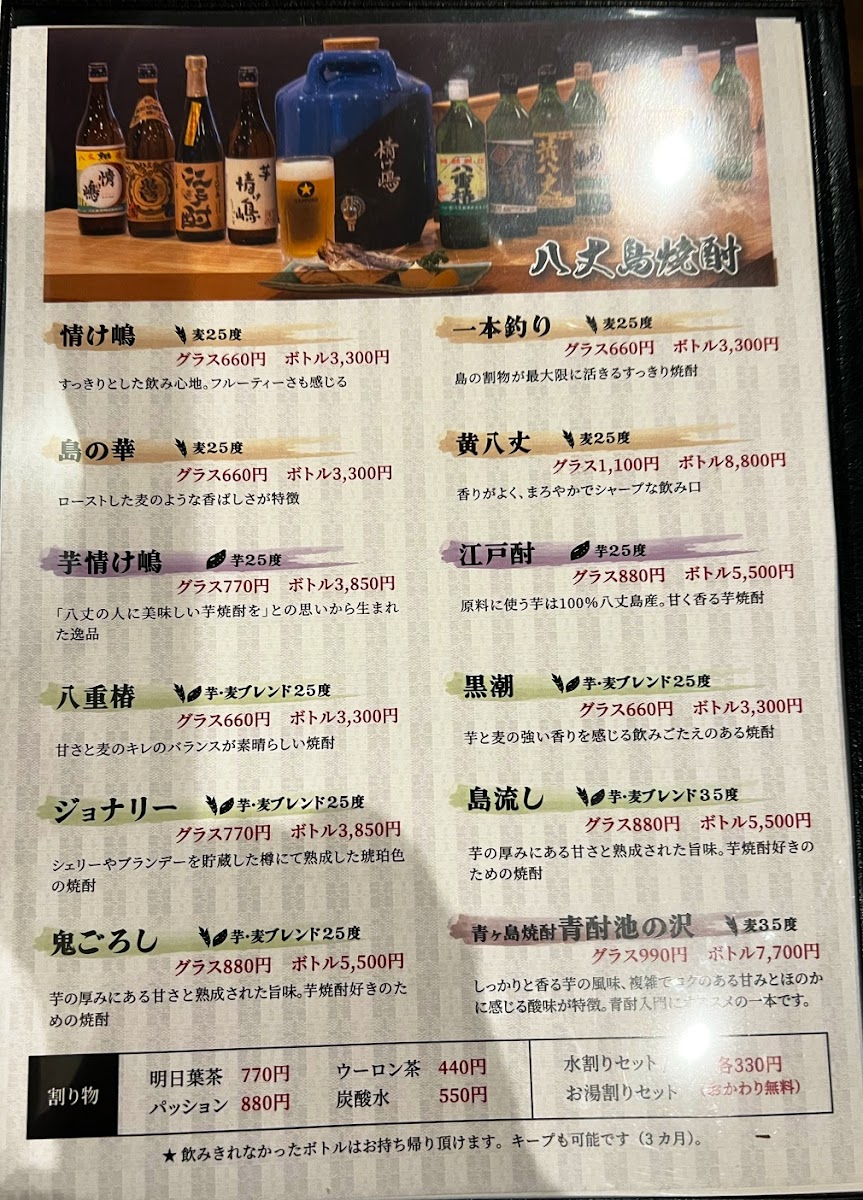 情け嶋
芋 情け嶋
江戸酎
情け嶋
八重椿
黄八丈
八丈島焼酎
情け嶋 麦25度
グラス660円 ボトル3,300円
すっきりとした飲み心地。フルーティーさも感じる
一本釣り 麦25度
グラス660円 ボトル3,300円
島の割物が最大限に活きるすっきり焼酎
島の華 麦25度
グラス660円 ボトル3,300円
ローストした麦のような香ばしさが特徴
黄八丈 麦25度
グラス1,100円 ボトル8,800円
香りがよく、まろやかでシャープな飲み口
芋情け嶋 芋25度
グラス770円 ボトル3,850円
「八丈の人に美味しい芋焼酎を」との思いから生まれ
た逸品
江戸酎 芋25度
グラス880円 ボトル5,500円
原料に使う芋は100%八丈島産。甘く香る芋焼酎
八重椿 芋・麦ブレンド25度
グラス660円 ボトル3,300円
甘さと麦のキレのバランスが素晴らしい焼酎
黒潮 芋・麦ブレンド25度
グラス660円 ボトル3,300円
芋と麦の強い香りを感じる飲みごたえのある焼酎
ジョナリー 芋・麦ブレンド25度
グラス770円 ボトル3,850円
シェリーやブランデーを貯蔵した樽にて熟成した琥珀色
の焼酎
島流し 芋・麦ブレンド35度
グラス880円 ボトル5,500円
芋の厚みにある甘さと熟成された旨味。芋焼酎好きの
ための焼酎
鬼ごろし 芋・麦ブレンド25度
グラス880円 ボトル5,500円
芋の厚みにある甘さと熟成された旨味。芋焼酎好きのた
めの焼酎
青ヶ島焼酎青酎池の沢 麦35度
グラス990円 ボトル7,700円
しっかりと香る芋の風味、複雑でコクのある甘みとほのか
に感じる酸味が特徴。青酎入門にオススメの一本です。
割り物
明日葉茶 770円 ウーロン茶 440円
パッション 880円 炭酸水 550円
水割りセット 各330円
お湯割りセット (おかわり無料)
★飲みきれなかったボトルはお持ち帰り頂けます。キープも可能です(3カ月)。